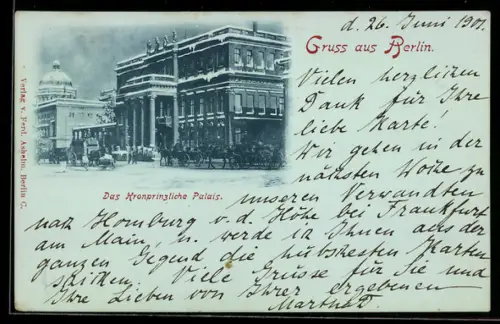 d. 26. Juni 1901.
Gruss aus Berlin.
Vielen herzlichen
Dank für Ihre
liebe Karte!
Wir gehen in der
nächsten Woche zu
unseren Verwandten
nach Homburg v. d. Höhe bei Frankfurt
am Main, u. werde ich Ihnen aus der
ganzen Gegend die hübschesten Karten
schicken. Viele Grüsse für Sie und
Ihre Lieben von Ihrer ergebenen
Martha D.
Das Kronprinzliche Palais.
Verlag v. Ferd. Ashelm, Berlin C.